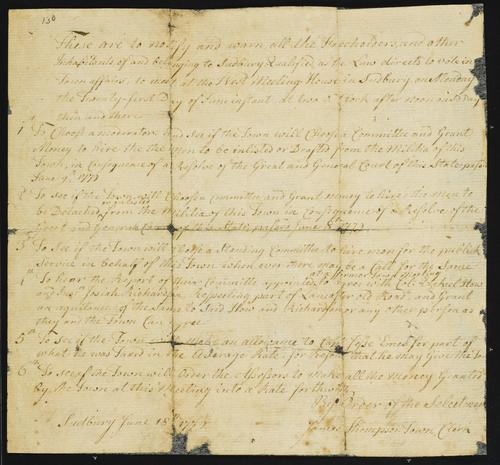 130
These are to notify and warn all the Freeholders, and other
Inhabitants of and belonging to Sudbury Qualifid as the Law directs to vote in
Town affairs, to meet at the West Meeting House in Sudbury, on Monday
the Twenty-first Day of June instant at two o'Clock after noon on sd Day
then and there
1 To Choose a moderator, And see if the Town will Choose a Committee and Grant
Money to hire the men to be inlisted or Drafted from the Militia of this
Town, in Consequence of a Resolve of the Great and General Court of this State
June 9th
2 To see if the Town will Choose a Committee and Grant Money to hire the men to
be Detached from the Militia of this Town in Consequence of a Resolve of the
Great and General Court of this State
3 To see if the Town will Choose a Standing Committee to hire men for the publick
Service in behalf of this Town when ever there may be a Call for the Same
4th To hear the Report of their Committe appointed to agree with Col. Ezekiel How
and Josiah Richardson Respecting part of Lancaster old Road, and Grant
an aquitance of the Same to said How and Richardson or any other person as
they and the Town Can Agree
5th To See if the Town Make an allowance to Capt. Emes for part of
what he was Taxed in the Average Rate for that he may Give the
6th To see if the Town will Order the Assessors to Make all the Money Granted
by the Town at this Meeting into a Rate forthwith
By Order of the Selectmen
Sudbury June 18th
James Thompson Town Clerk